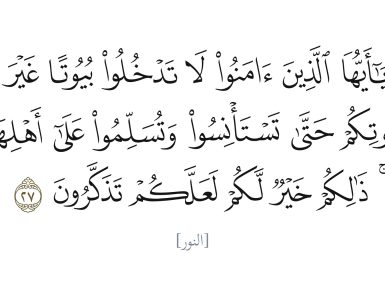 يَٰٓأَيُّهَا ٱلَّذِينَ ءَامَنُوا۟ لَا تَدْخُلُوا۟ بُيُوتًا غَيْرَ
وتِكُمْ حَتَّىٰ تَسْتَأْنِسُوا۟ وَتُسَلِّمُوا۟ عَلَىٰٓ أَهْلِهَا
ۚ ذَٰلِكُمْ خَيْرٌ لَّكُمْ لَعَلَّكُمْ تَذَكَّرُونَ ٢٧
[النور]